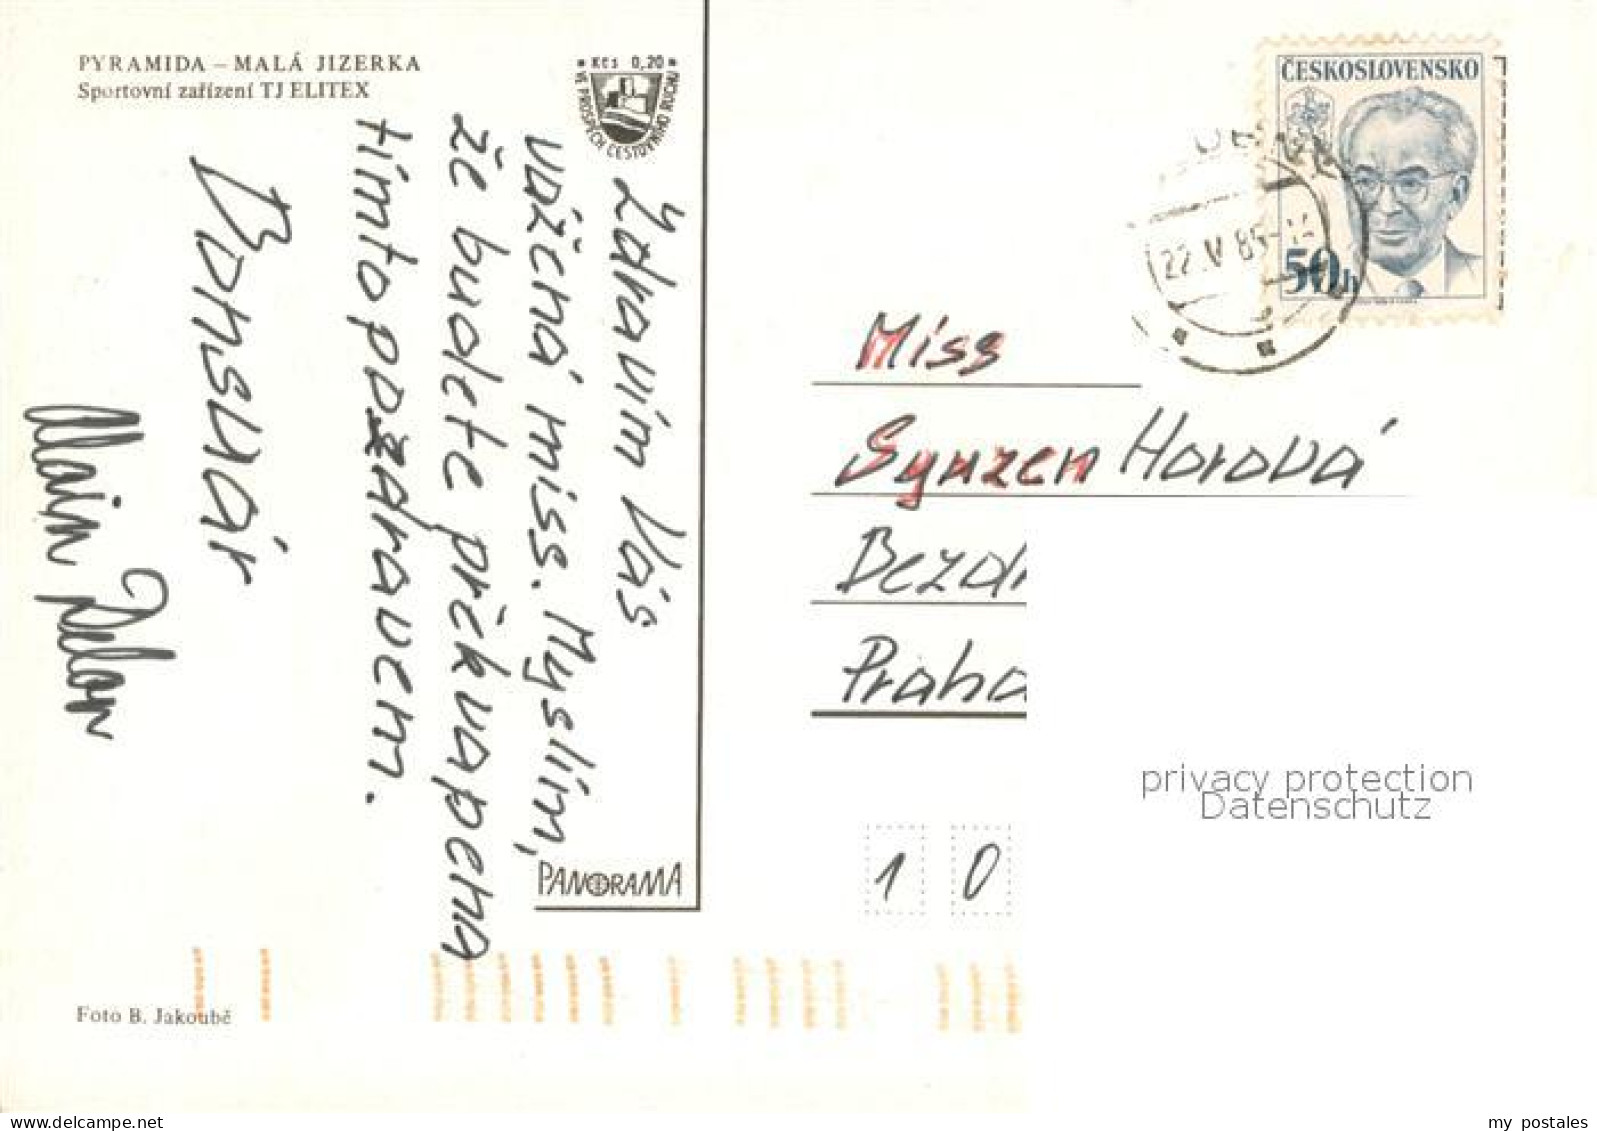 PYRAMIDA – MALÁ JIZERKA
Sportovní zařízení TJ ELITEX
Kčs 0,20
VE PROSPĚCH CESTOVNÍHO RUCHU
Zdravím Vás
vážená miss. Myslím,
že budete překvapena
tímto pozdravem.
Bonsuár
Alain Delon
PANORAMA
Foto B. Jakoubě
ČESKOSLOVENSKO
50h
22.V.85
Miss
Synzen Horová
Bezdr
Praha
1 0
privacy protection
Datenschutz
my postales